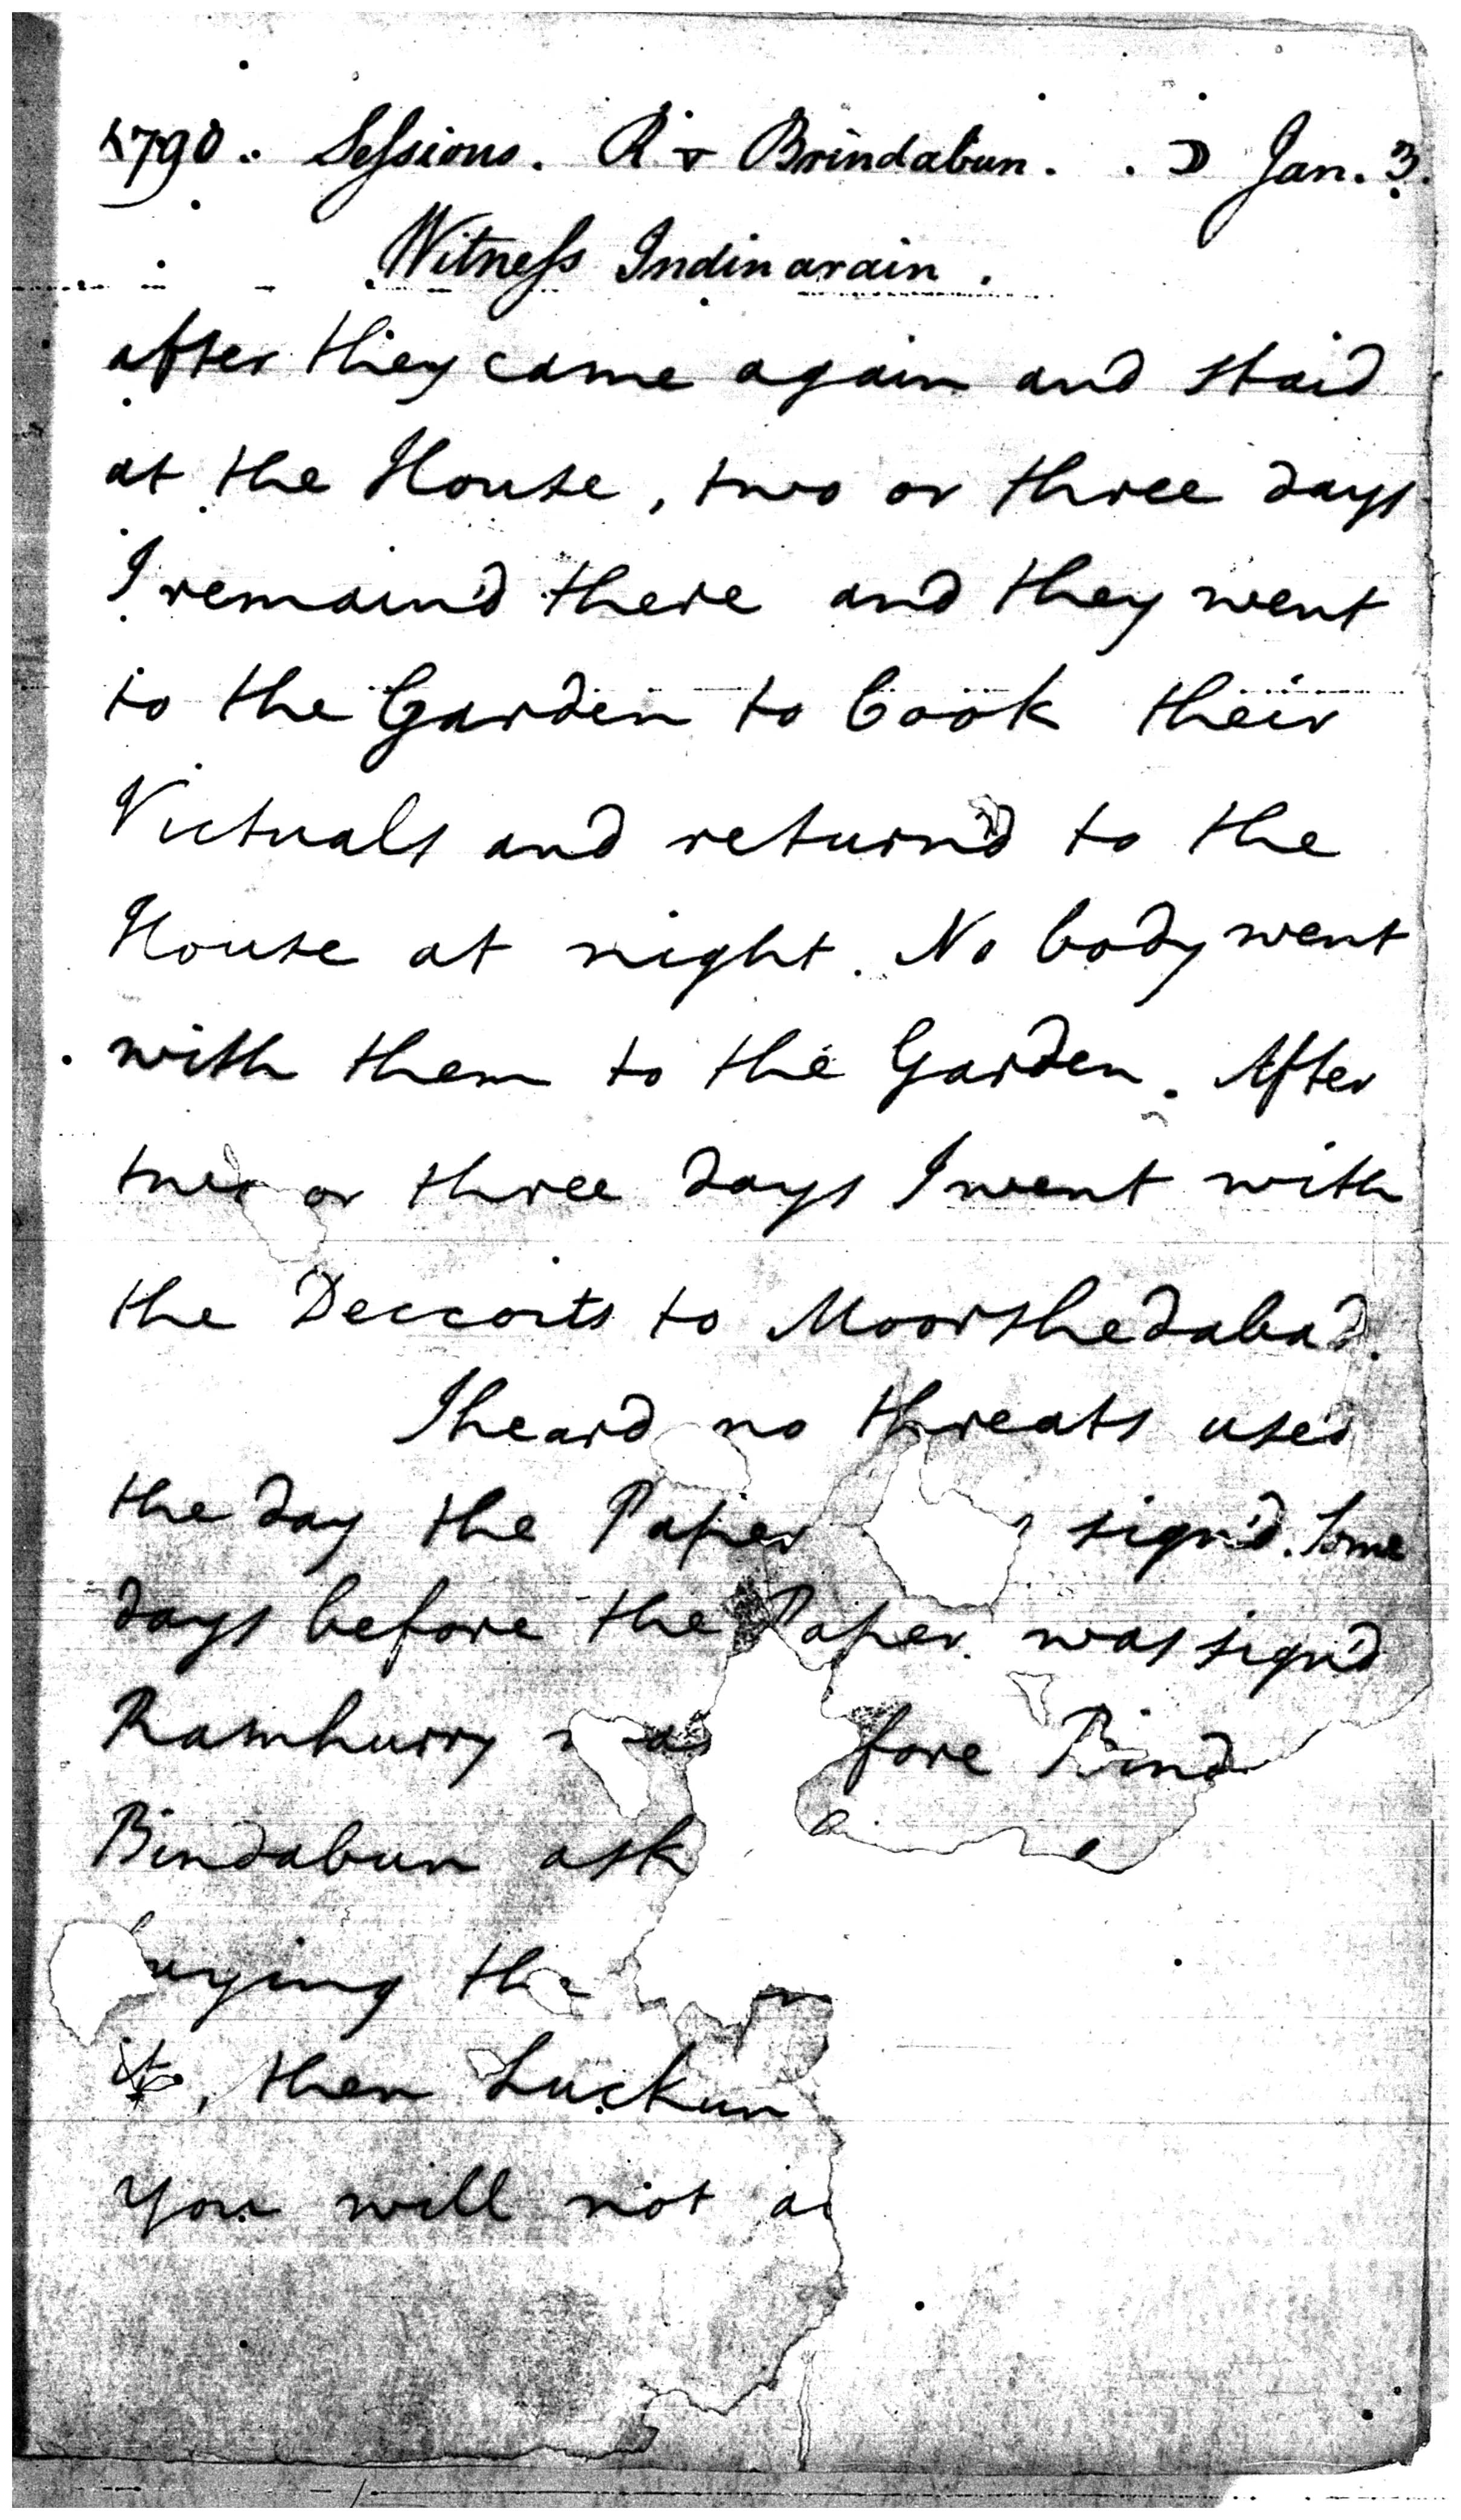 1790. Sessions. R v Brindabun. . ☽ Jan. 3.
Witness Indinarain.
after they came again and staid
at the House, two or three days
I remain'd there and they went
to the Garden to Cook their
Victuals and return'd to the
House at night. No body went
with them to the Garden. After
two or three days I went with
the Deccoits to Moorshedabad.
I heard no threats used
the day the Paper sign'd. Some
days before the Paper was sign'd
Ramhurry was fore Bind
Bindabun ask
the
it, then Luckun
you will not